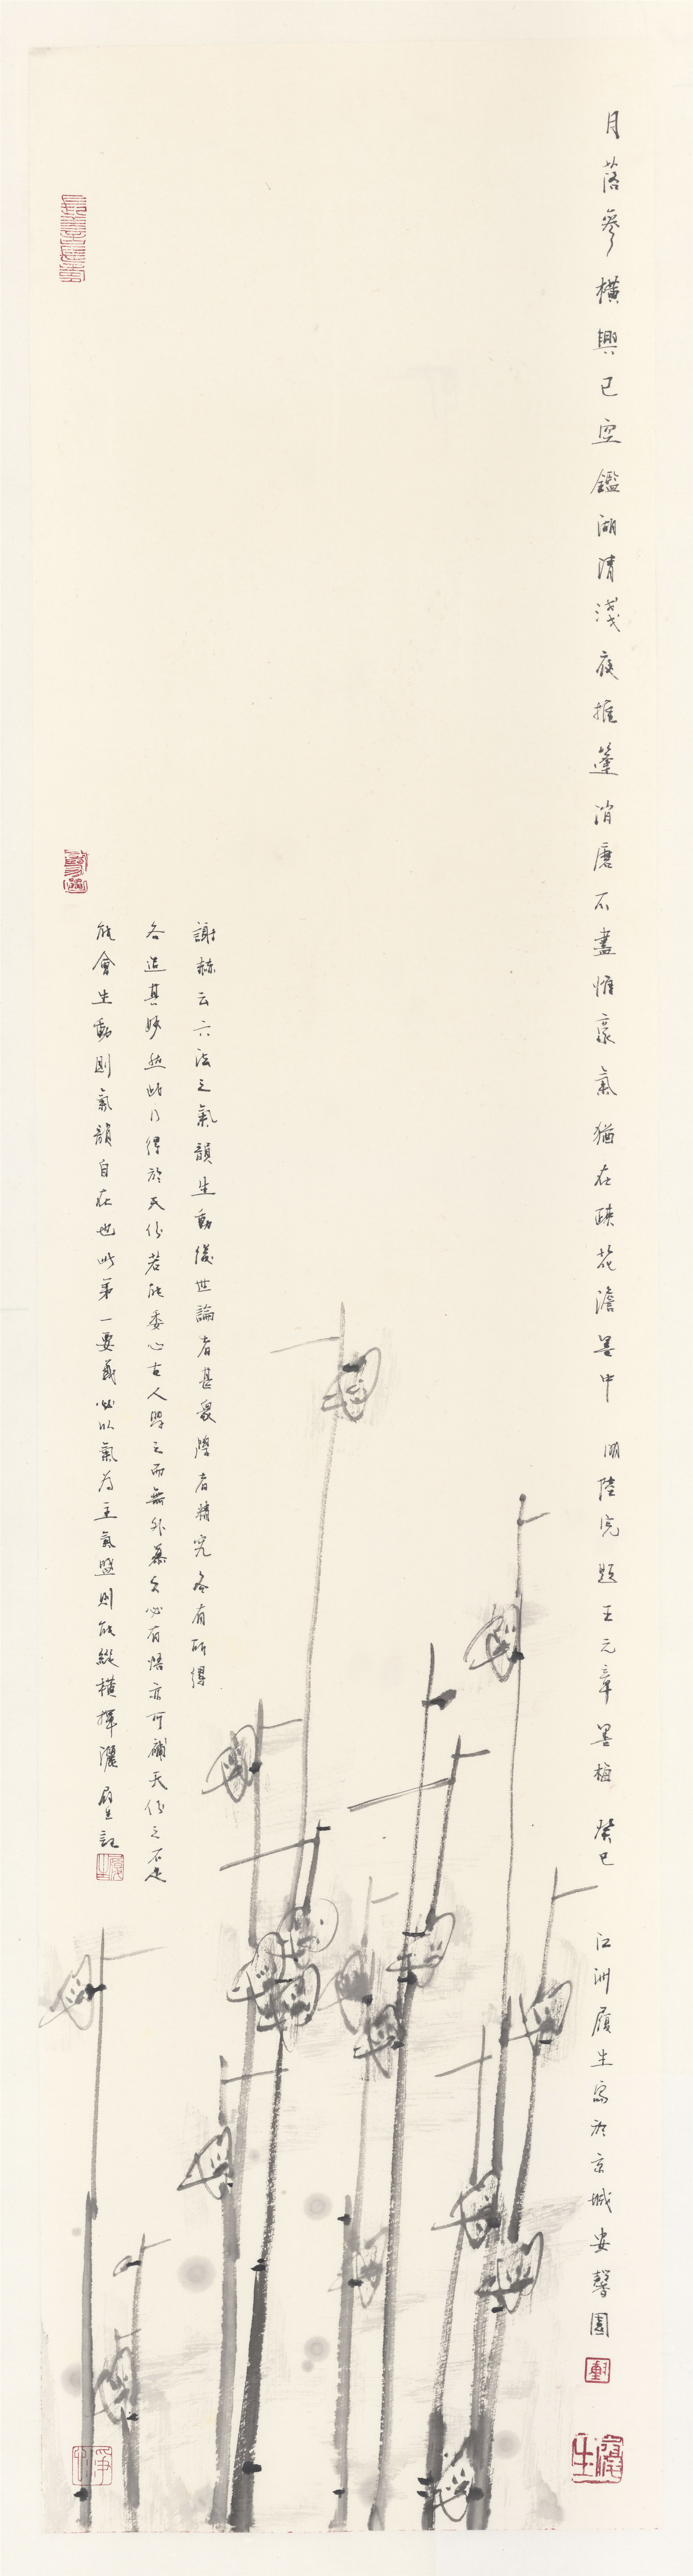 月落參橫興已空鑑湖清淺夜推篷消磨不盡惟豪氣猶在疎花澹墨中 明陸完題王元章墨梅 癸巳 江洲履生寫於京城安馨園
謝赫云六法之氣韻生動後世論者甚衆學者精究各有所得
各造其妙然此乃得於天份若能委心古人學之而無外慕久必有悟亦可補天份之不足
能會生動則氣韻自在也此第一要義必以氣為主氣盛則能縱橫揮灑 履生記